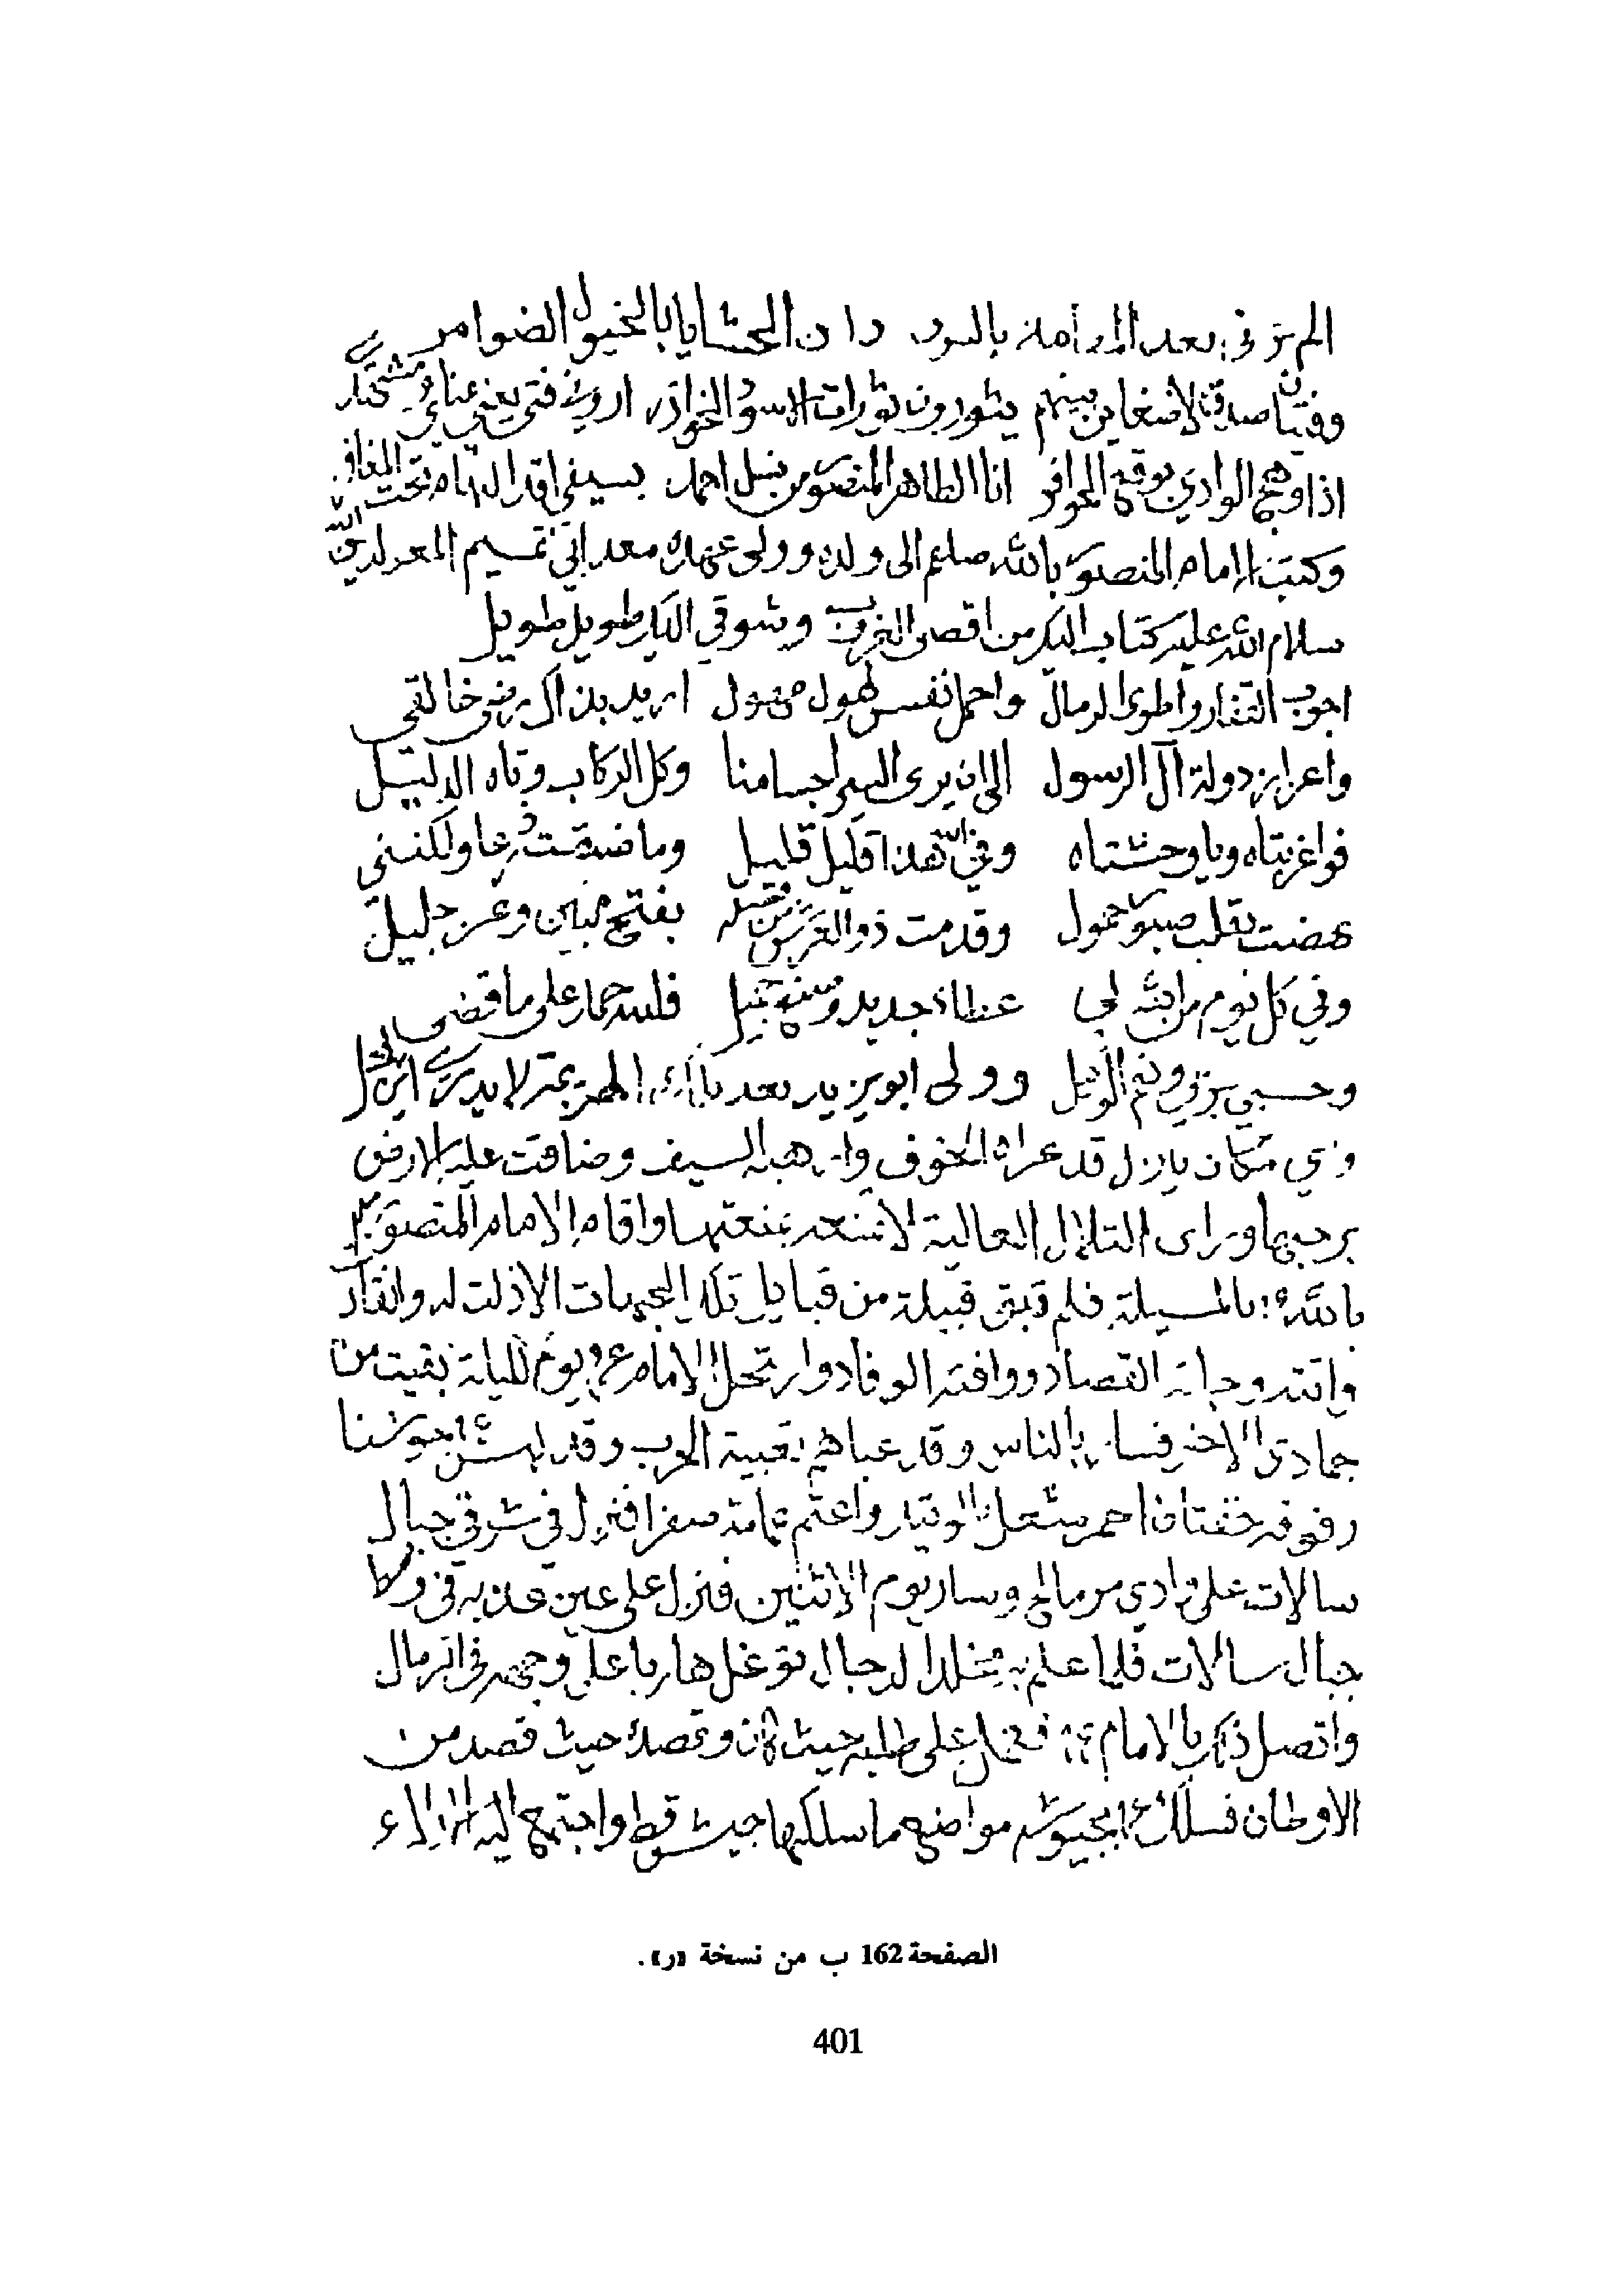 الم ترني بعد بالسرى الحشايا بالخيول الضوامر
وفتيان صدق لا ضغاين بينهم يثورون ثورات الاسود الخوادر اروني فتى يغني غناي ومشهدي
اذا وهج الوادي بوقع الحوافر انا الطاهر المنصور من نسل احمد بسيفي اقد الهام تحت المغافر
وكتب الامام المنصور بالله صلعم الى ولده وولي عهده معد ابي تميم المعز لدين الله
سلام الله عليه كتابي اليك من اقصى الغروب وشوقي اليك طويل طويل
اجوب القفار واطوى الرمال واحمل نفسي لهول مهول اريد بذاك رضى خالقي
واعزاز دولة آل الرسول الى ان يرى السير اجسامنا وكل الركاب وتاه الدليل
فواغربتاه وياوحشتاه وفي الله هذا قليل قليل وما ضقت ذرعا ولكنني
نهضت بقلب صبور حمول وقد من ذو العرش من فضله بفتح مبين وعز جليل
وفي كل يوم من الله لي عطاء جديد وصنع جميل فلله حمد على ما قضى
وحسبي بربي ونعم الوكيل وولى ابو يزيد بعد الهزيمة لا يدري اين
واي مكان ينزل قد عراه الخوف السيف وضاقت عليه الارض
برحبها وراى التلال العالية لا تمنعه بمنعتها واقام الامام المنصور
بالله ع م بالمسيلة فلم تبق قبيلة من قبايل تلك الجهات الا ذلت له وانقاد
واتته وجاءته القصاد ووافته الوفاد وارتحل الامام ع م يوم لليلة بقيت من
جمادى الاخر فسار بالناس وقد عباهم تعبية الحرب وقد لبس جوشنا
وفوقه خفتانا احمر واعتم عمامة صفرا فنزل في شرقي جبال
سالات على وادي مر مالح وسار يوم الاثنين فنزل على عين عذبة في
جبال سالات فلما علم به مخلد الدجال توغل هاربا على وجهه في الرمال
واتصل ذكره بالامام على طلبه حيث كان وقصده حيث قصد من
الاوطان فسلك بجيوشه مواضع ما سلكها جيش قط واجتمع اليه

الصفحة 162 ب من نسخة «ر».
401